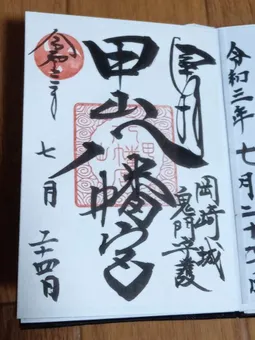 令和三年七月二十
岡崎城
鬼門守護
甲山八幡宮
令和三年
七月
二十四日